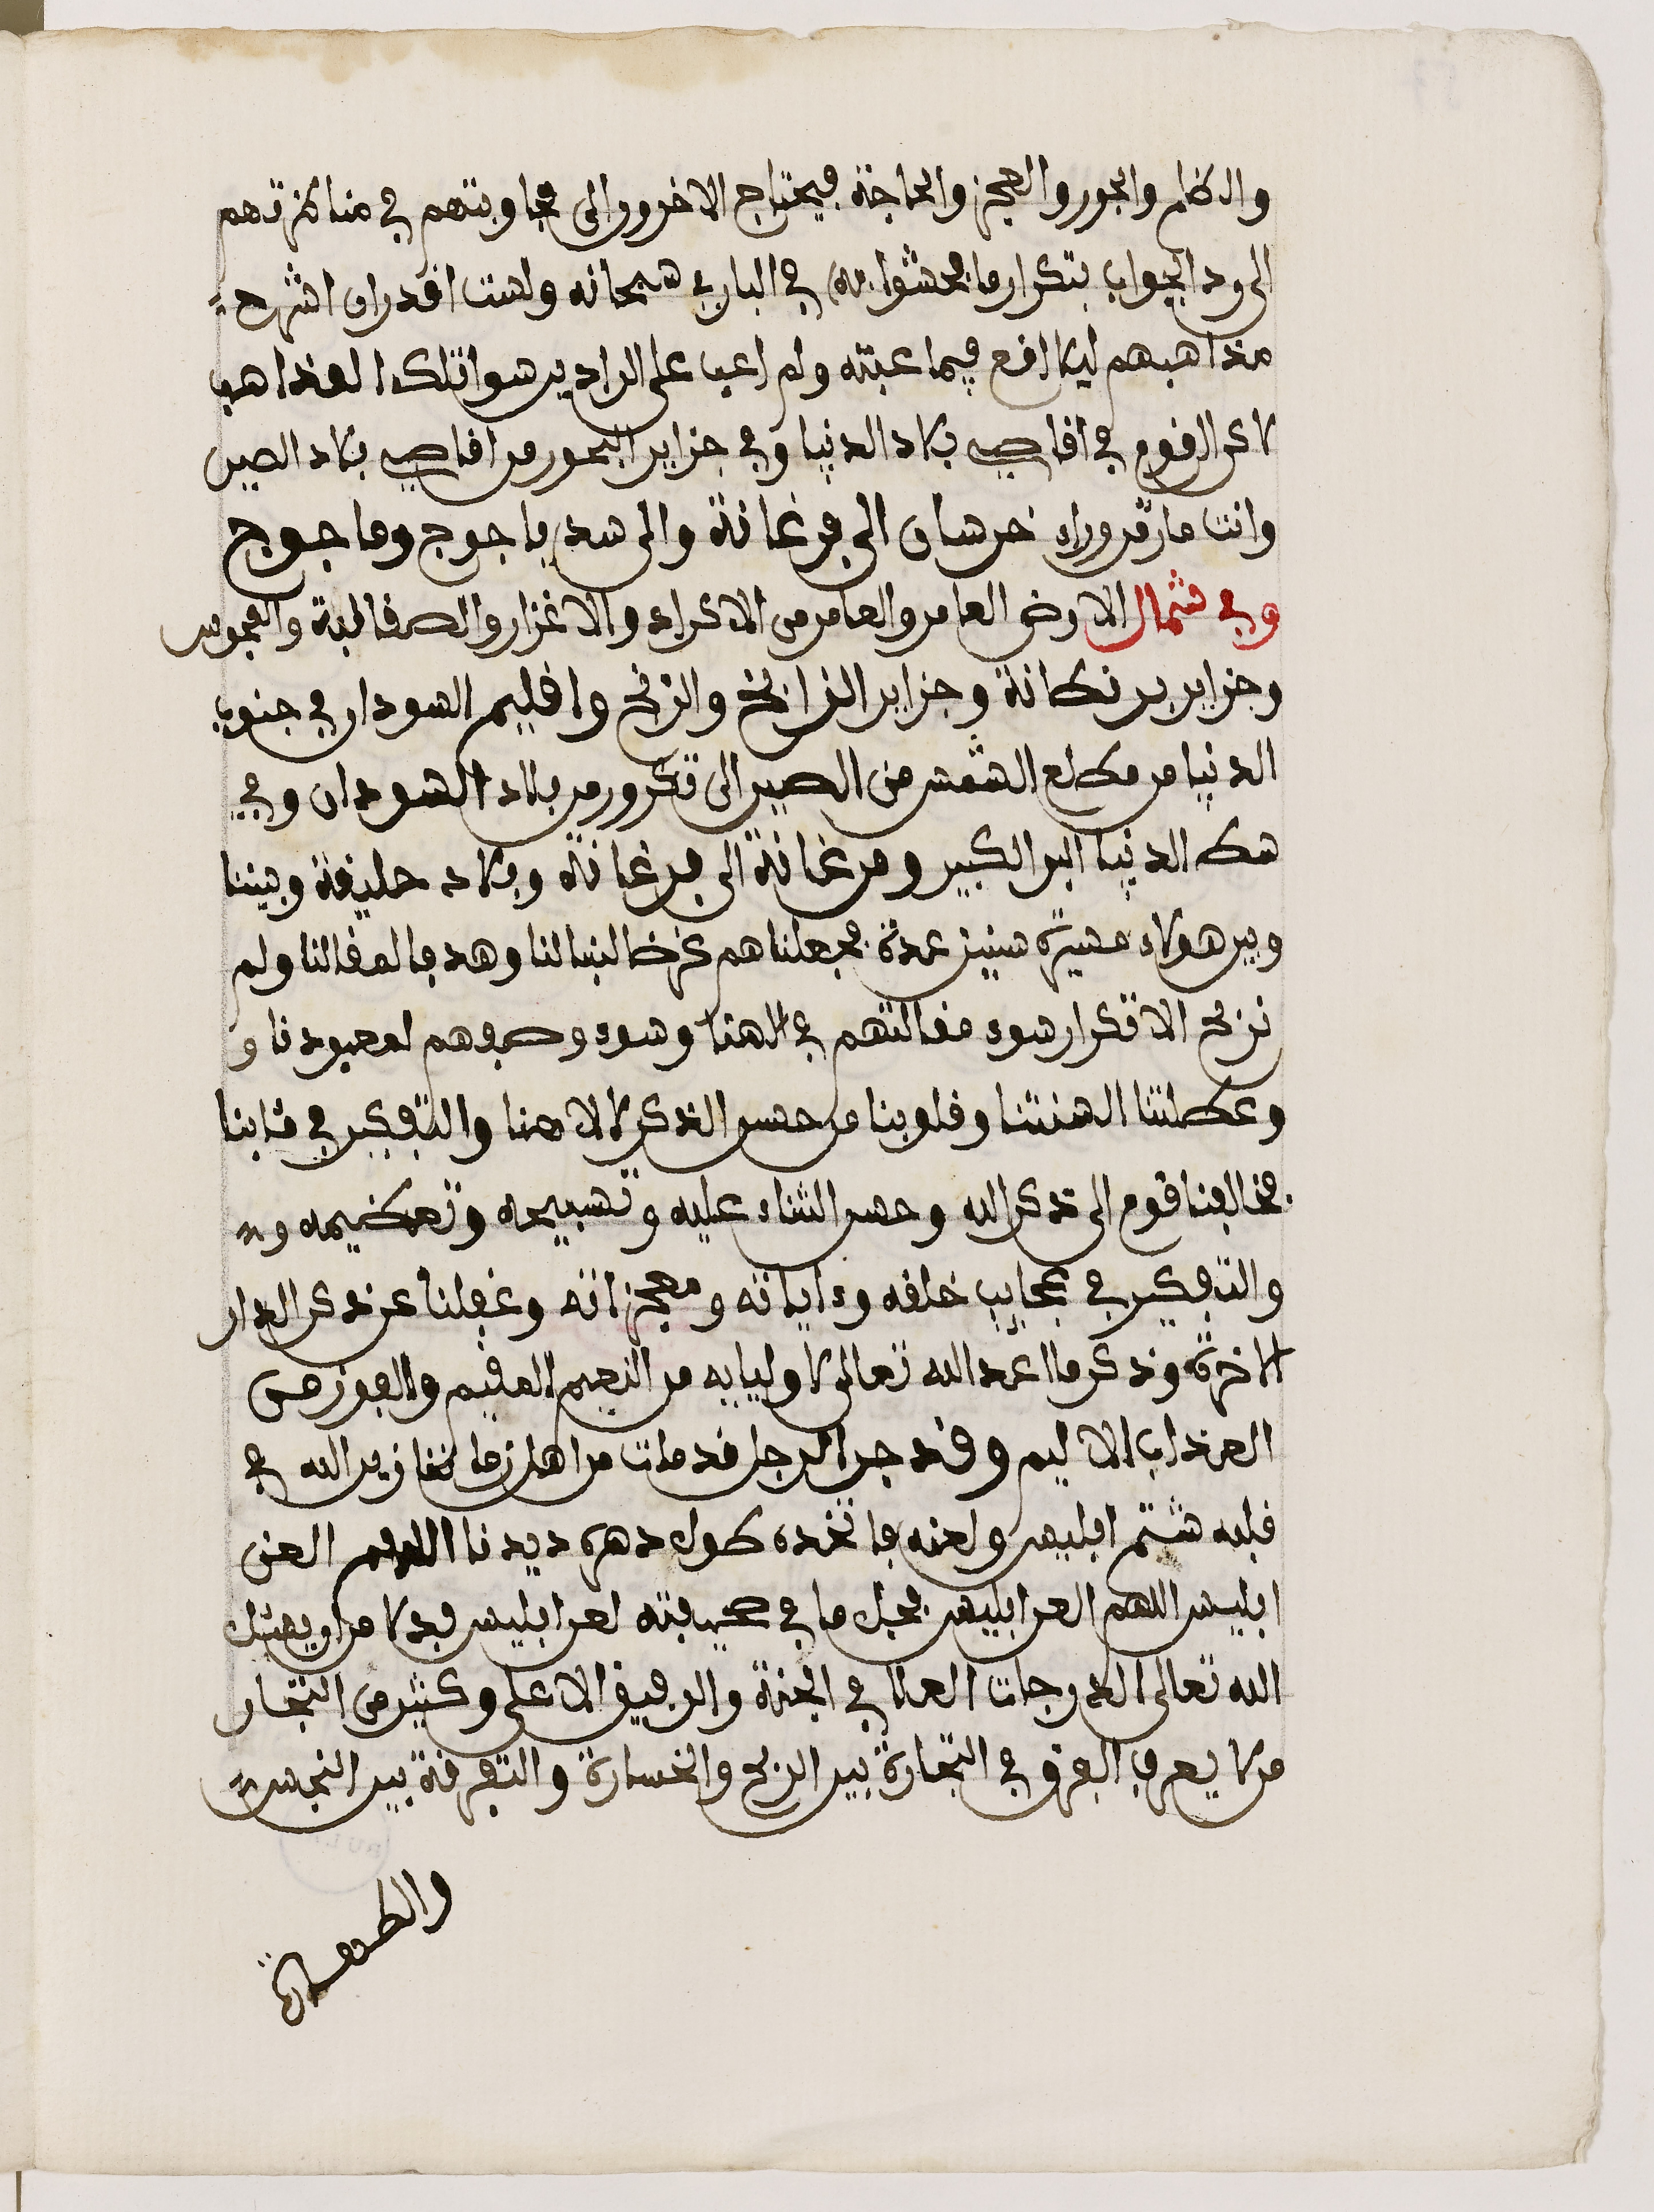 والظلم والجور والعجز والحاجة فيحتاج الاخرور الى مجاوبتهم في مناكرتهم
الى رد الجواب بتكرار ما فحشوا به في الباري سبحانه ولست اقدر ان اشرح
مذاهبهم ليلا اقع فيما عبته ولم اعب على الرادين سوا تلك المذاهب
لاكن القوم في اقاصي بلاد الدنيا وفي جزاير البحور من اقاصي بلاد الصين
وانت مار من وراء خرسان الى فرغانة والى سد ياجوج وماجوج
وفي شمال الارض العامر والغامر من الاكراد والاغزار والصقالبة والمجوس
وجزاير برطانة وجزاير الزابخ والزنج واقليم السودان في جنوب
الدنيا من مطلع الشمس من الصين الى تكرور من بلاد السودان وفي
وسط الدنيا البر الكبير ومن غانة الى فرغانة وبلاد خليفة وبيننا
وبين هولاء مسيرة سنين عدة فجعلناهم غرضا لنبالنا وهدفا لمقالنا ولم
نربح الا تكرار سوء مقالتهم في الاهنا وسوء وصفهم لمعبودنا و
وعطلتنا السنتنا وقلوبنا من حسن الذكر لالاهنا والتفكير في ثابنا
فخالفنا قوم الى ذكر الله وحسن الثناء عليه وتسبيحه وتعظيمه و
والتفكير في عجايب خلقه وءاياته ومعجزاته وغفلنا عن ذكر الدار
الاخرة وذكر ما اعد الله تعالى لاوليايه من النعيم المقيم والفوز من
العذاب الاليم وقد جرا لرجل قد مات من اهل زماننا زين الله في
قلبه شتم ابليس ولعنه فاتخذه طول دهره ديدنا اللهم العن
ابليس اللهم العن ابليس فجل ما في صحيفته لعن ابليس فبدلا من ان يسئل
الله تعالى الدرجات العلا في الجنة والرفيق الاعلى وكثير من التجار
من لا يعرف الفرق في التجارة بين الربح والخسارة والتفرقة بين النجس
والطهارة